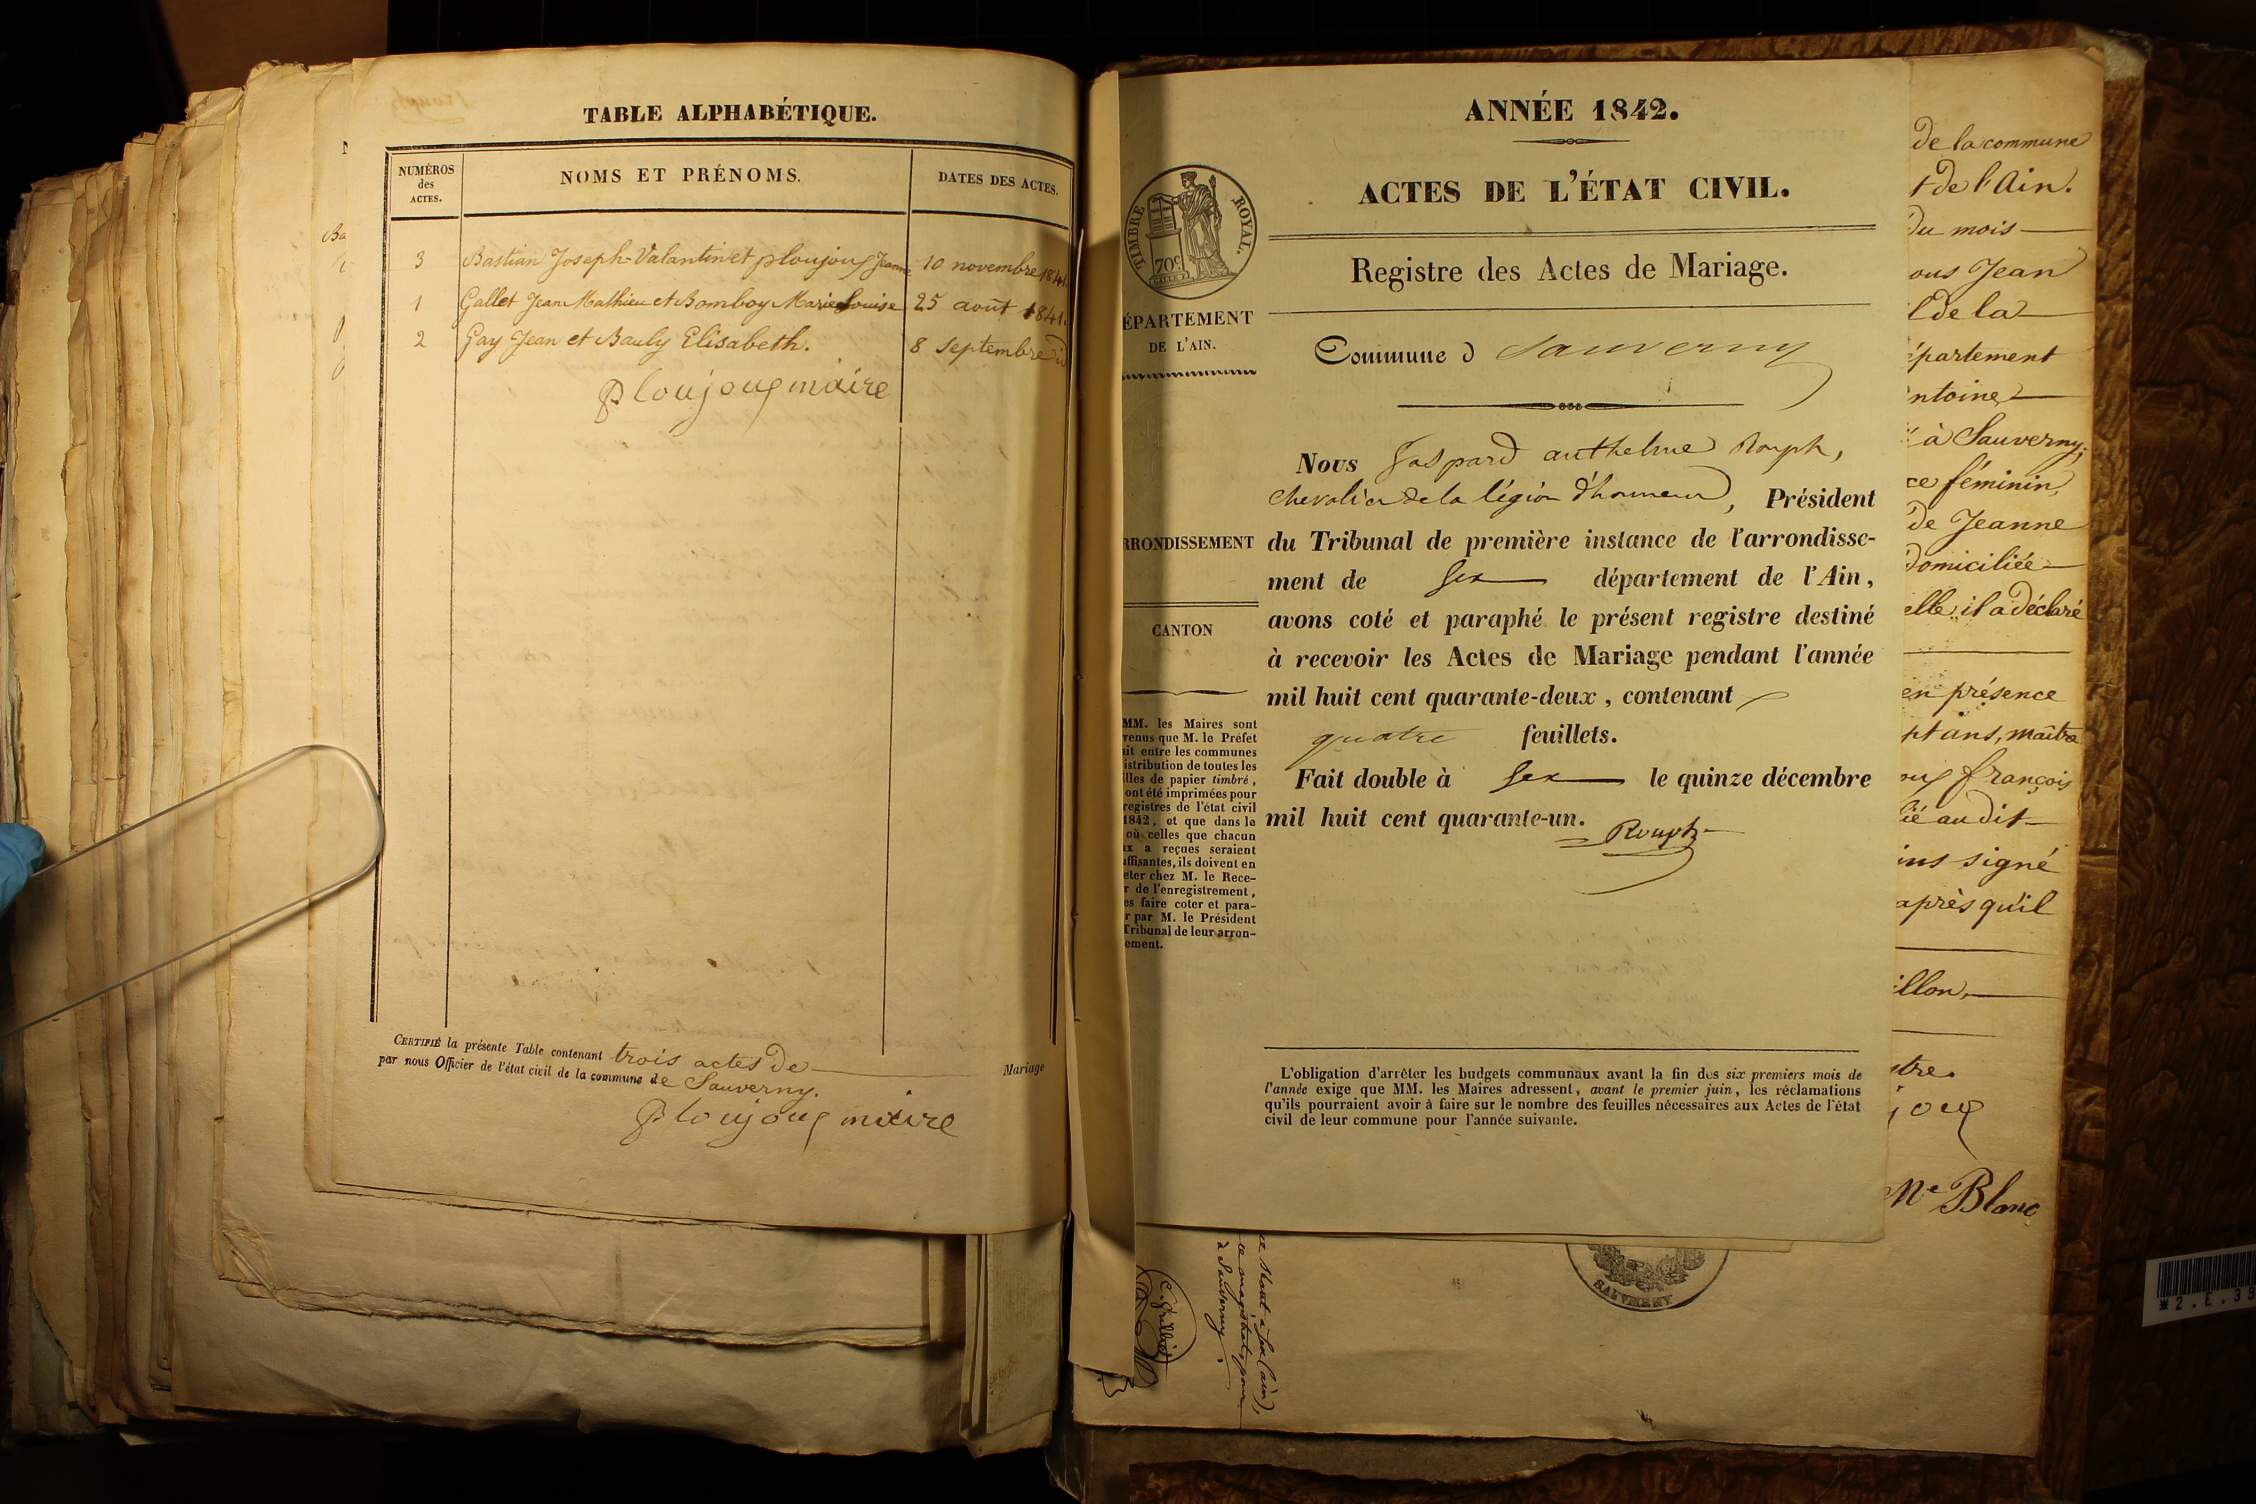 TABLE ALPHABÉTIQUE.
NUMÉROS
des
ACTES.
NOMS ET PRÉNOMS.
DATES DES ACTES.
3 Bastian Joseph-Valantin et Ploujoux Jeanne 10 novembre 1841.
1 Gallet Jean Mathieu et Bomboy Marie Louise 25 août 1841.
2 Gay Jean et Bauly Elisabeth. 8 septembre id
Ploujoux maire
CERTIFIÉ la présente Table contenant trois actes de Mariage
par nous Officier de l'état civil de la commune de Sauverny.
Ploujoux maire
ANNÉE 1842.
ACTES DE L'ÉTAT CIVIL.
TIMBRE ROYAL.
70c
Registre des Actes de Mariage.
ÉPARTEMENT
DE L'AIN.
Commune d Sauverny
Nous Gaspard anthelme Rouph,
chevalier de la légion d'honneur, Président
RRONDISSEMENT
du Tribunal de première instance de l'arrondisse-
ment de Gex département de l'Ain,
avons coté et paraphé le présent registre destiné
CANTON
à recevoir les Actes de Mariage pendant l'année
mil huit cent quarante-deux, contenant
quatre feuillets.
Fait double à Gex le quinze décembre
mil huit cent quarante-un.
Rouph
MM. les Maires sont
venus que M. le Préfet
ait entre les communes
istribution de toutes les
illes de papier timbré,
ont été imprimées pour
registres de l'état civil
1842, et que dans le
où celles que chacun
ux a reçues seraient
uffisantes, ils doivent en
eter chez M. le Rece-
r de l'enregistrement,
es faire coter et para-
r par M. le Président
Tribunal de leur arron-
ement.
L'obligation d'arrêter les budgets communaux avant la fin des six premiers mois de
l'année exige que MM. les Maires adressent, avant le premier juin, les réclamations
qu'ils pourraient avoir à faire sur le nombre des feuilles nécessaires aux Actes de l'état
civil de leur commune pour l'année suivante.
de la commune
t de l'Ain.
du mois
ous Jean
l de la
épartement
ntoine
à Sauverny;
ce féminin,
de Jeanne
domiciliée
elle il a déclaré
en présence
pt ans, maître
oux françois
lié au dit
ins signé
après qu'il
illon,
stre.
joux
Ne Blanc
SAUVERNY
à Sauverny.
*2.E.39